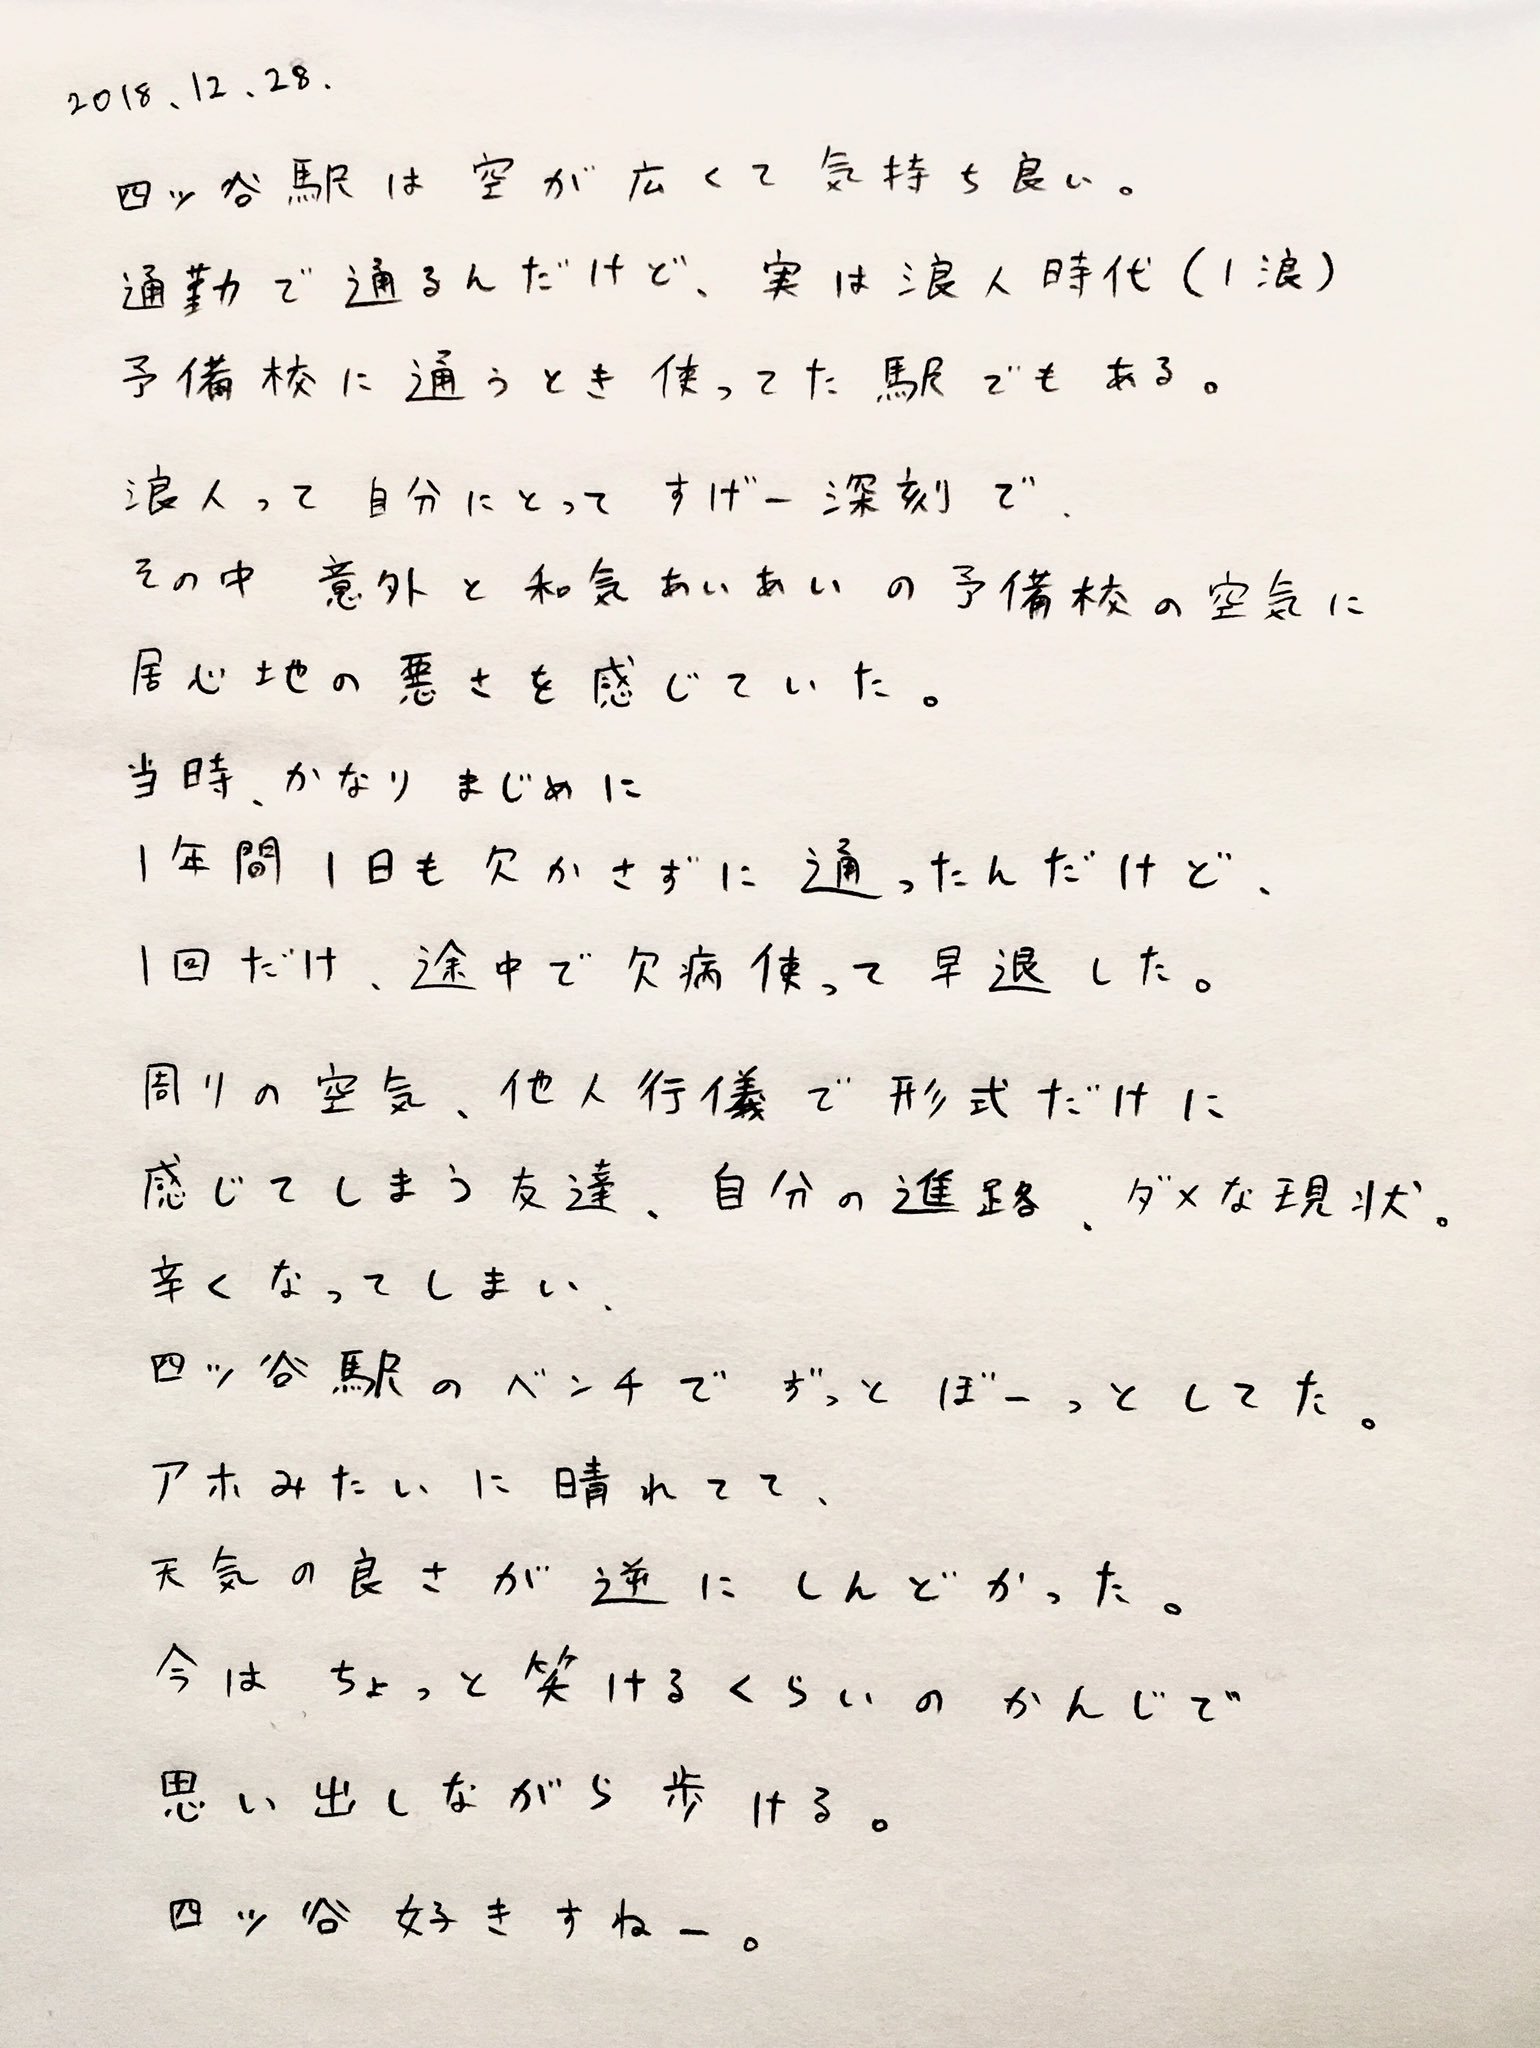 2018、12、28.
四ッ谷駅は空が広くて気持ち良い。
通勤で通るんだけど、実は浪人時代(1浪)
予備校に通うとき使ってた駅でもある。
浪人って自分にとってすげー深刻で、
その中意外と和気あいあいの予備校の空気に
居心地の悪さを感じていた。
当時、かなりまじめに
1年間1日も欠かさずに通ったんだけど、
1回だけ、途中で欠病使って早退した。
周りの空気、他人行儀で形式だけに
感じてしまう友達、自分の進路、ダメな現状。
辛くなってしまい、
四ッ谷駅のベンチでずっとぼーっとしてた。
アホみたいに晴れてて、
天気の良さが逆にしんどかった。
今はちょっと笑けるくらいのかんじで
思い出しながら歩ける。
四ッ谷好きすねー。